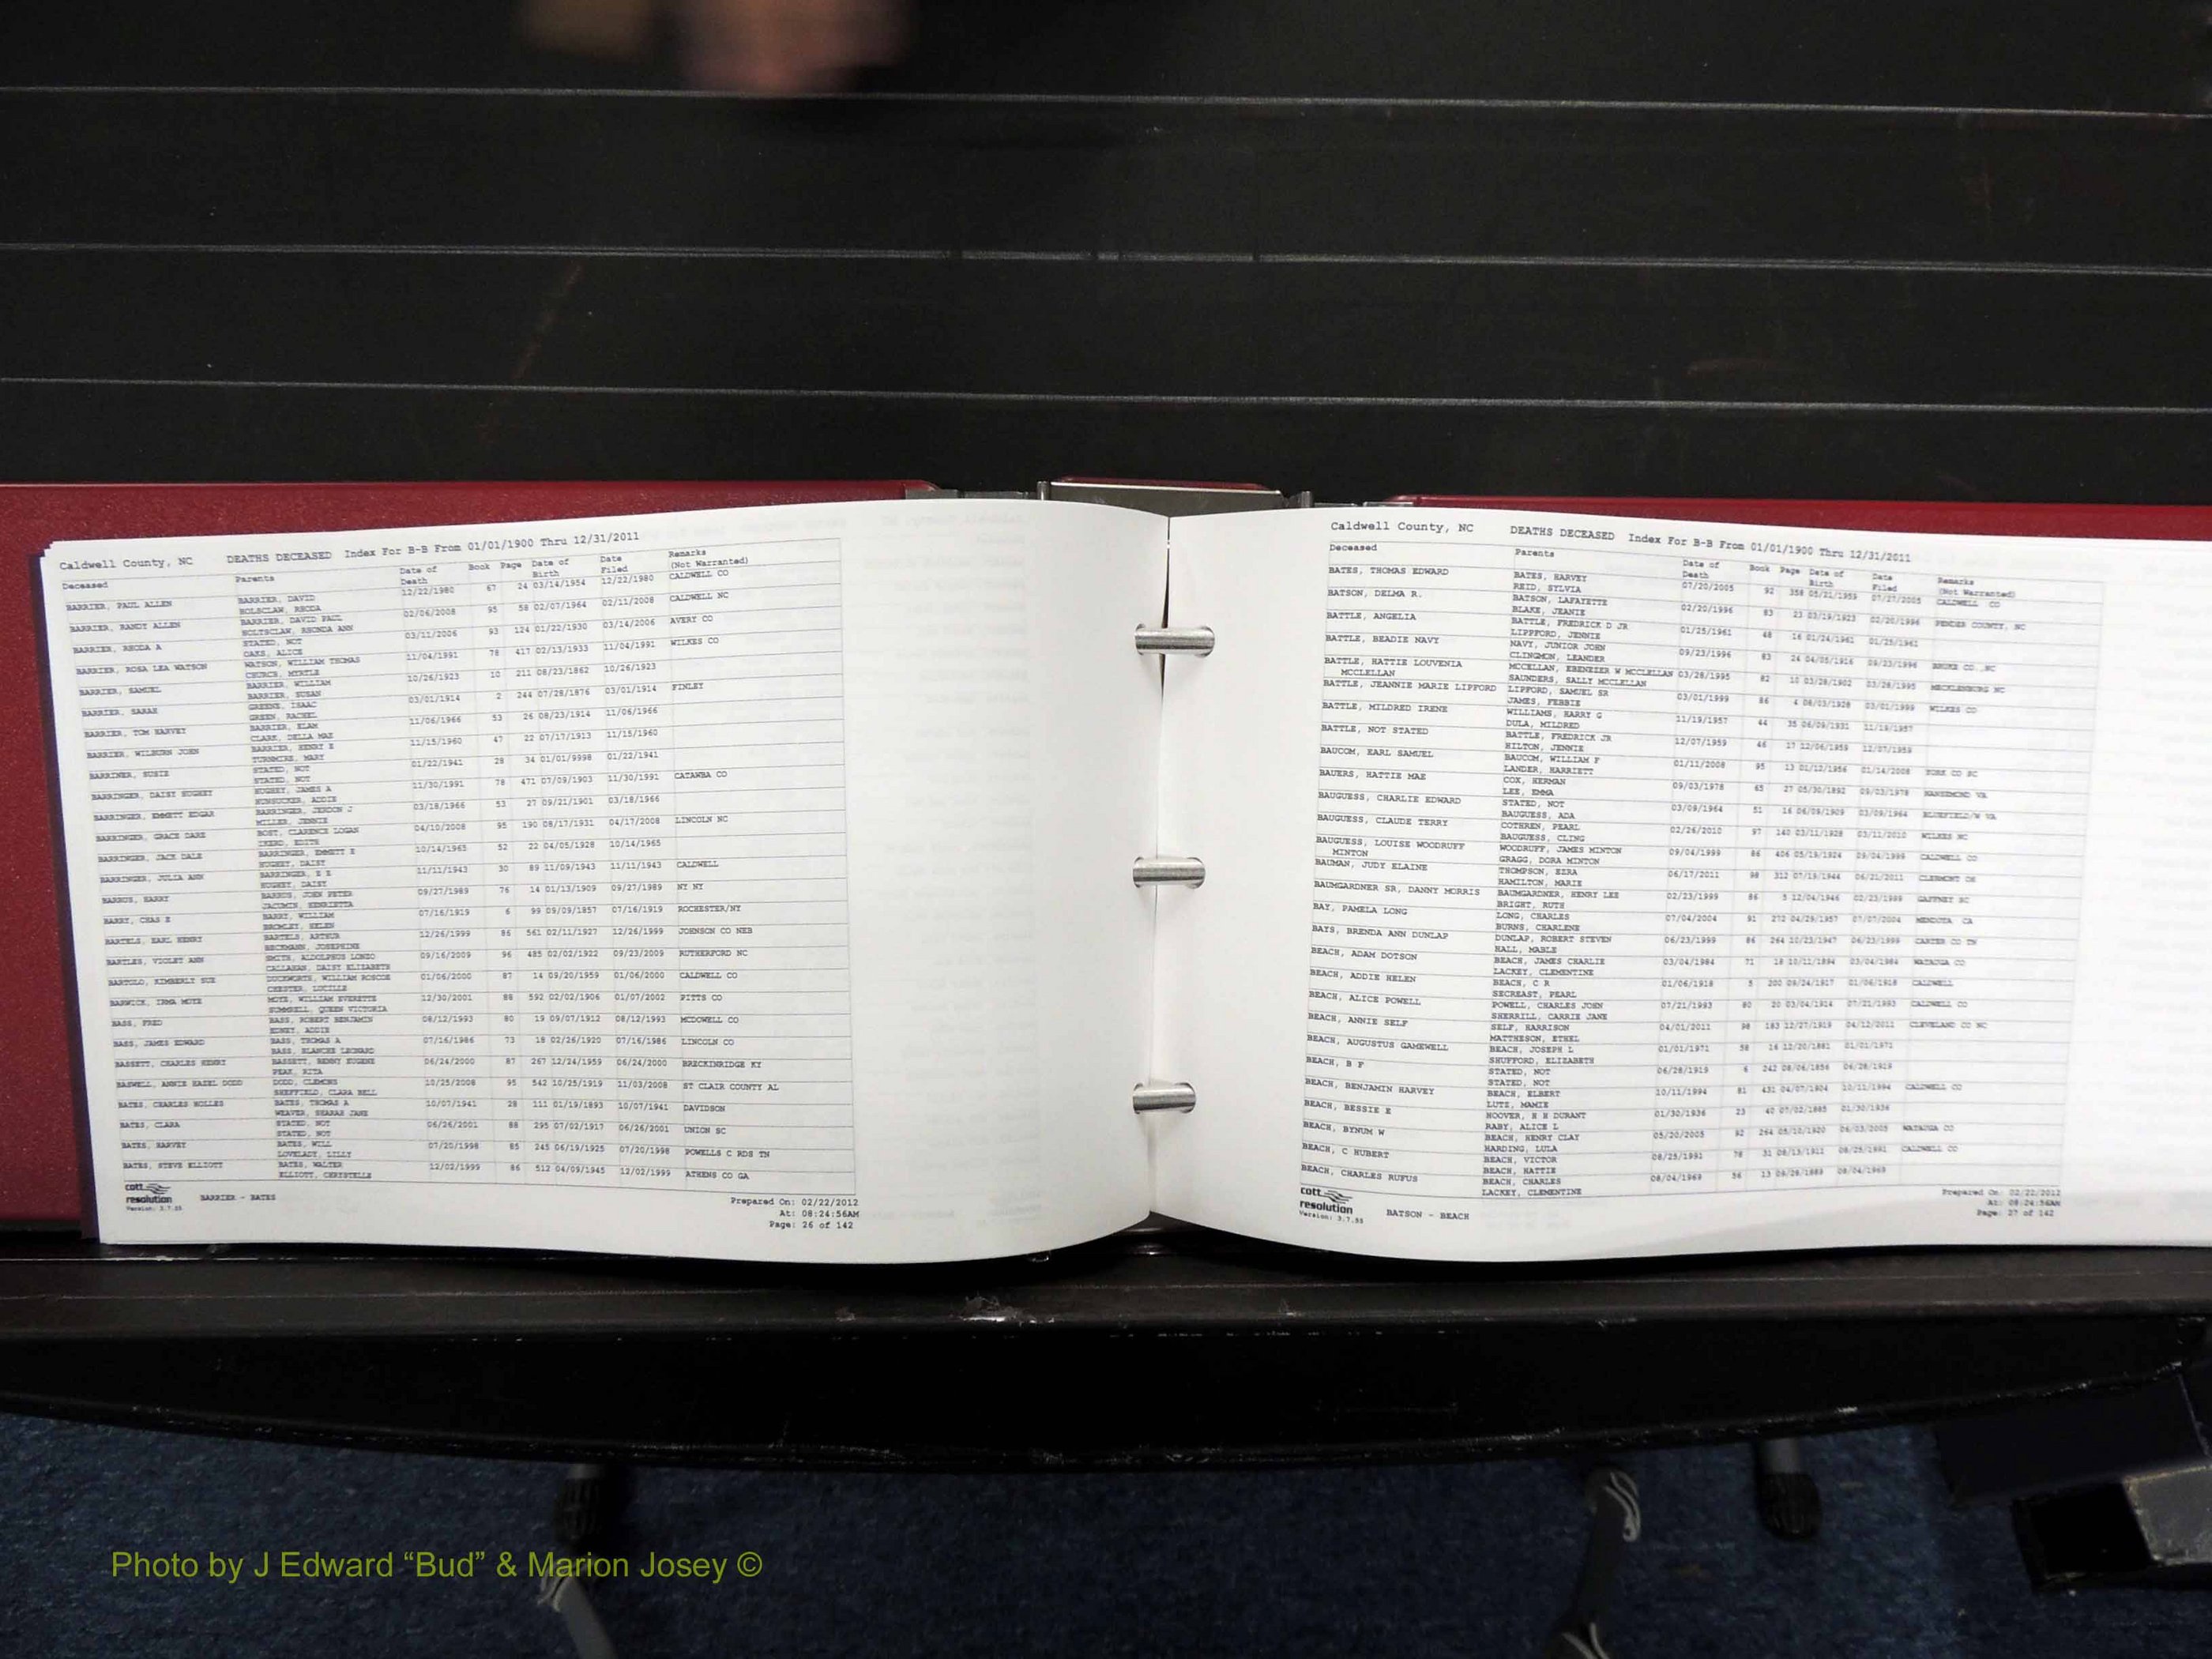 Caldwell County, NC DEATHS DECEASED Index For B-B From 01/01/1900 Thru 12/31/2011
Deceased Parents Date of Death Book Page Date of Birth Date Filed Remarks (Not Warranted)
BARRIER, PAUL ALLEN BARRIER, DAVID 12/22/1980 67 24 03/14/1954 12/22/1980 CALDWELL CO
HOLSCLAW, RHODA
BARRIER, RANDY ALLEN BARRIER, DAVID PAUL 02/06/2008 95 58 02/07/1964 02/11/2008 CALDWELL NC
HOLTSCLAW, RHONDA ANN
BARRIER, RHODA A STATED, NOT 03/11/2006 93 124 01/22/1930 03/14/2006 AVERY CO
OAKS, ALICE
BARRIER, ROSA LEA WATSON WATSON, WILLIAM THOMAS 11/04/1991 78 417 02/13/1933 11/04/1991 WILKES CO
CHURCH, MYRTLE
BARRIER, SAMUEL BARRIER, WILLIAM 10/26/1923 10 211 08/23/1862 10/26/1923
BARRIER, SUSAN
BARRIER, SARAH GREENE, ISAAC 03/01/1914 2 244 07/28/1876 03/01/1914 FINLEY
GREEN, RACHEL
BARRIER, TOM HARVEY BARRIER, ELAM 11/06/1966 53 26 08/23/1914 11/06/1966
CLARK, DELLA MAE
BARRIER, WILBURN JOHN BARRIER, HENRY E 11/15/1960 47 22 07/17/1913 11/15/1960
TURNMIRE, MARY
BARRINER, SUSIE STATED, NOT 01/22/1941 28 34 01/01/9998 01/22/1941
STATED, NOT
BARRINGER, DAISY HUGHEY HUGHEY, JAMES A 11/30/1991 78 471 07/09/1903 11/30/1991 CATAWBA CO
HUNSUCKER, ADDIE
BARRINGER, EMMETT EDGAR BARRINGER, JERDON J 03/18/1966 53 27 09/21/1901 03/18/1966
MILLER, JENNIE
BARRINGER, GRACE DARE BOST, CLARENCE LOGAN 04/10/2008 95 190 08/17/1931 04/17/2008 LINCOLN NC
IKERD, EDITH
BARRINGER, JACK DALE BARRINGER, EMMETT E 10/14/1965 52 22 04/05/1928 10/14/1965
HUGHEY, DAISY
BARRINGER, JULIA ANN BARRINGER, E E 11/11/1943 30 89 11/09/1943 11/11/1943 CALDWELL
HUGHEY, DAISY
BARROS, HARRY BARROS, JOHN PETER 09/27/1989 76 14 01/13/1909 09/27/1989 NY NY
JACUMIN, HENRIETTA
BARRY, CHAS E BARRY, WILLIAM 07/16/1919 6 99 09/09/1857 07/16/1919 ROCHESTER/NY
BROMLEY, HELEN
BARTELS, EARL HENRY BARTELS, ARTHUR 12/26/1999 86 561 02/11/1927 12/26/1999 JOHNSON CO NEB
BECKMANN, JOSEPHINE
BARTLES, VIOLET ANN SMITH, ALDOLPHUS LONZO 09/16/2009 96 485 02/02/1922 09/23/2009 RUTHERFORD NC
CALLAHAN, DAISY ELIZABETH
BARTOLO, KIMBERLY SUE DUCKWORTH, WILLIAM ROSCOE 01/06/2000 87 14 09/20/1959 01/06/2000 CALDWELL CO
CHESTER, LUCILLE
BARWICK, IRMA MOYE MOYE, WILLIAM EVERETTE 12/30/2001 88 592 02/02/1906 01/07/2002 PITTS CO
SUMMRELL, QUEEN VICTORIA
BASS, FRED BASS, ROBERT BENJAMIN 08/12/1993 80 19 09/07/1912 08/12/1993 MCDOWELL CO
EDNEY, ADDIE
BASS, JAMES EDWARD BASS, THOMAS A 07/16/1986 73 18 02/26/1920 07/16/1986 LINCOLN CO
BASS, BLANCHE LEONARD
BASSETT, CHARLES HENRY BASSETT, BENNY EUGENE 06/24/2000 87 267 12/24/1959 06/24/2000 BRECKINRIDGE KY
PEAK, RITA
BASWELL, ANNIE HAZEL DODD DODD, CLEMONS 10/25/2008 95 542 10/25/1919 11/03/2008 ST CLAIR COUNTY AL
SHEFFIELD, CLARA BELL
BATES, CHARLES HOLLES BATES, THOMAS A 10/07/1941 28 111 01/19/1893 10/07/1941 DAVIDSON
WEAVER, SHARAH JANE
BATES, CLARA STATED, NOT 06/26/2001 88 295 07/02/1917 06/26/2001 UNION SC
STATED, NOT
BATES, HARVEY BATES, WILL 07/20/1998 85 245 06/19/1925 07/20/1998 POWELLS C RDS TN
LOVELADY, LILLY
BATES, STEVE ELLIOTT BATES, WALTER 12/02/1999 86 512 04/09/1945 12/02/1999 ATHENS CO GA
ELLIOTT, CHRYSTELLE
cott
resolution
Version: 3.7.55
BARRIER - BATES
Prepared On: 02/22/2012
At: 08:24:56AM
Page: 26 of 142
Caldwell County, NC DEATHS DECEASED Index For B-B From 01/01/1900 Thru 12/31/2011
Deceased Parents Date of Death Book Page Date of Birth Date Filed Remarks (Not Warranted)
BATES, THOMAS EDWARD BATES, HARVEY 07/20/2005 92 358 05/21/1959 07/27/2005 CALDWELL CO
REID, SYLVIA
BATSON, DELMA R. BATSON, LAFAYETTE 02/20/1996 83 23 03/19/1923 02/20/1996 PENDER COUNTY, NC
BLAKE, JEANIE
BATTLE, ANGELIA BATTLE, FREDRICK D JR 01/25/1961 48 16 01/24/1961 01/25/1961
LIPPFORD, JENNIE
BATTLE, BEADIE NAVY NAVY, JUNIOR JOHN 09/23/1996 83 24 04/05/1916 09/23/1996 BURKE CO. NC
CLINGMON, LEANDER
BATTLE, HATTIE LOUVENIA MCCLELLAN MCCELLAN, EBENEZER W MCCLELLAN 03/28/1995 82 10 03/28/1902 03/28/1995 MECKLENBURG NC
SAUNDERS, SALLY MCCLELLAN
BATTLE, JEANNIE MARIE LIPFORD LIPFORD, SAMUEL SR 03/01/1999 86 4 08/03/1928 03/01/1999 WILKES CO
JAMES, FEBBIE
BATTLE, MILDRED IRENE WILLIAMS, HARRY G 11/19/1957 44 35 06/09/1931 11/19/1957
DULA, MILDRED
BATTLE, NOT STATED BATTLE, FREDRICK JR 12/07/1959 46 17 12/06/1959 12/07/1959
HILTON, JENNIE
BAUCOM, EARL SAMUEL BAUCOM, WILLIAM F 01/11/2008 95 13 01/12/1956 01/14/2008 YORK CO SC
LANDER, HARRIETT
BAUERS, HATTIE MAE COX, HERMAN 09/03/1978 65 27 05/30/1892 09/03/1978 NANSEMOND VA
LEE, EMMA
BAUGUESS, CHARLIE EDWARD STATED, NOT 03/09/1964 51 16 06/09/1909 03/09/1964 BLUEFIELD/W VA
BAUGUESS, ADA
BAUGUESS, CLAUDE TERRY COTHREN, PEARL 02/26/2010 97 140 03/11/1928 03/11/2010 WILKES NC
BAUGUESS, CLING
BAUGUESS, LOUISE WOODRUFF MINTON WOODRUFF, JAMES MINTON 09/04/1999 86 406 05/19/1924 09/04/1999 CALDWELL CO
GRAGG, DORA MINTON
BAUMAN, JUDY ELAINE THOMPSON, EZRA 06/17/2011 98 312 07/19/1944 06/21/2011 CLERMONT OH
HAMILTON, MARIE
BAUMGARDNER SR, DANNY MORRIS BAUMGARDNER, HENRY LEE 02/23/1999 86 5 12/04/1946 02/23/1999 GAFFNEY SC
BRIGHT, RUTH
BAY, PAMELA LONG LONG, CHARLES 07/04/2004 91 272 04/29/1957 07/07/2004 MENDOTA CA
BURNS, CHARLENE
BAYS, BRENDA ANN DUNLAP DUNLAP, ROBERT STEVEN 06/23/1999 86 264 10/23/1947 06/23/1999 CARTER CO TN
HALL, MABLE
BEACH, ADAM DOTSON BEACH, JAMES CHARLIE 03/04/1984 71 18 10/11/1894 03/04/1984 WATAUGA CO
LACKEY, CLEMENTINE
BEACH, ADDIE HELEN BEACH, C R 01/06/1918 5 200 09/24/1917 01/06/1918 CALDWELL
SECREAST, PEARL
BEACH, ALICE POWELL POWELL, CHARLES JOHN 07/21/1993 80 20 03/04/1914 07/21/1993 CALDWELL CO
SHERRILL, CARRIE JANE
BEACH, ANNIE SELF SELF, HARRISON 04/01/2011 98 183 12/27/1919 04/12/2011 CLEVELAND CO NC
MATTHESON, ETHEL
BEACH, AUGUSTUS GAMEWELL BEACH, JOSEPH L 01/01/1971 58 16 12/20/1881 01/01/1971
SHUFFORD, ELIZABETH
BEACH, B F STATED, NOT 06/28/1919 6 242 08/06/1856 06/28/1919
STATED, NOT
BEACH, BENJAMIN HARVEY BEACH, ELBERT 10/11/1994 81 431 04/07/1904 10/11/1994 CALDWELL CO
LUTZ, MAMIE
BEACH, BESSIE E HOOVER, H H DURANT 01/30/1936 23 40 07/02/1885 01/30/1936
RABY, ALICE L
BEACH, BYNUM W BEACH, HENRY CLAY 05/20/2005 92 264 05/10/1920 06/03/2005 WATAUGA CO
HARDING, LULA
BEACH, C HUBERT BEACH, VICTOR 08/25/1991 78 31 08/13/1911 08/25/1991 CALDWELL CO
BEACH, HATTIE
BEACH, CHARLES RUFUS BEACH, CHARLES 08/04/1969 56 13 09/28/1889 08/04/1969
LACKEY, CLEMENTINE
cott
resolution
Version: 3.7.55
BATSON - BEACH
Prepared On: 02/22/2012
At: 08:24:56AM
Page: 27 of 142
Photo by J Edward “Bud” & Marion Josey ©